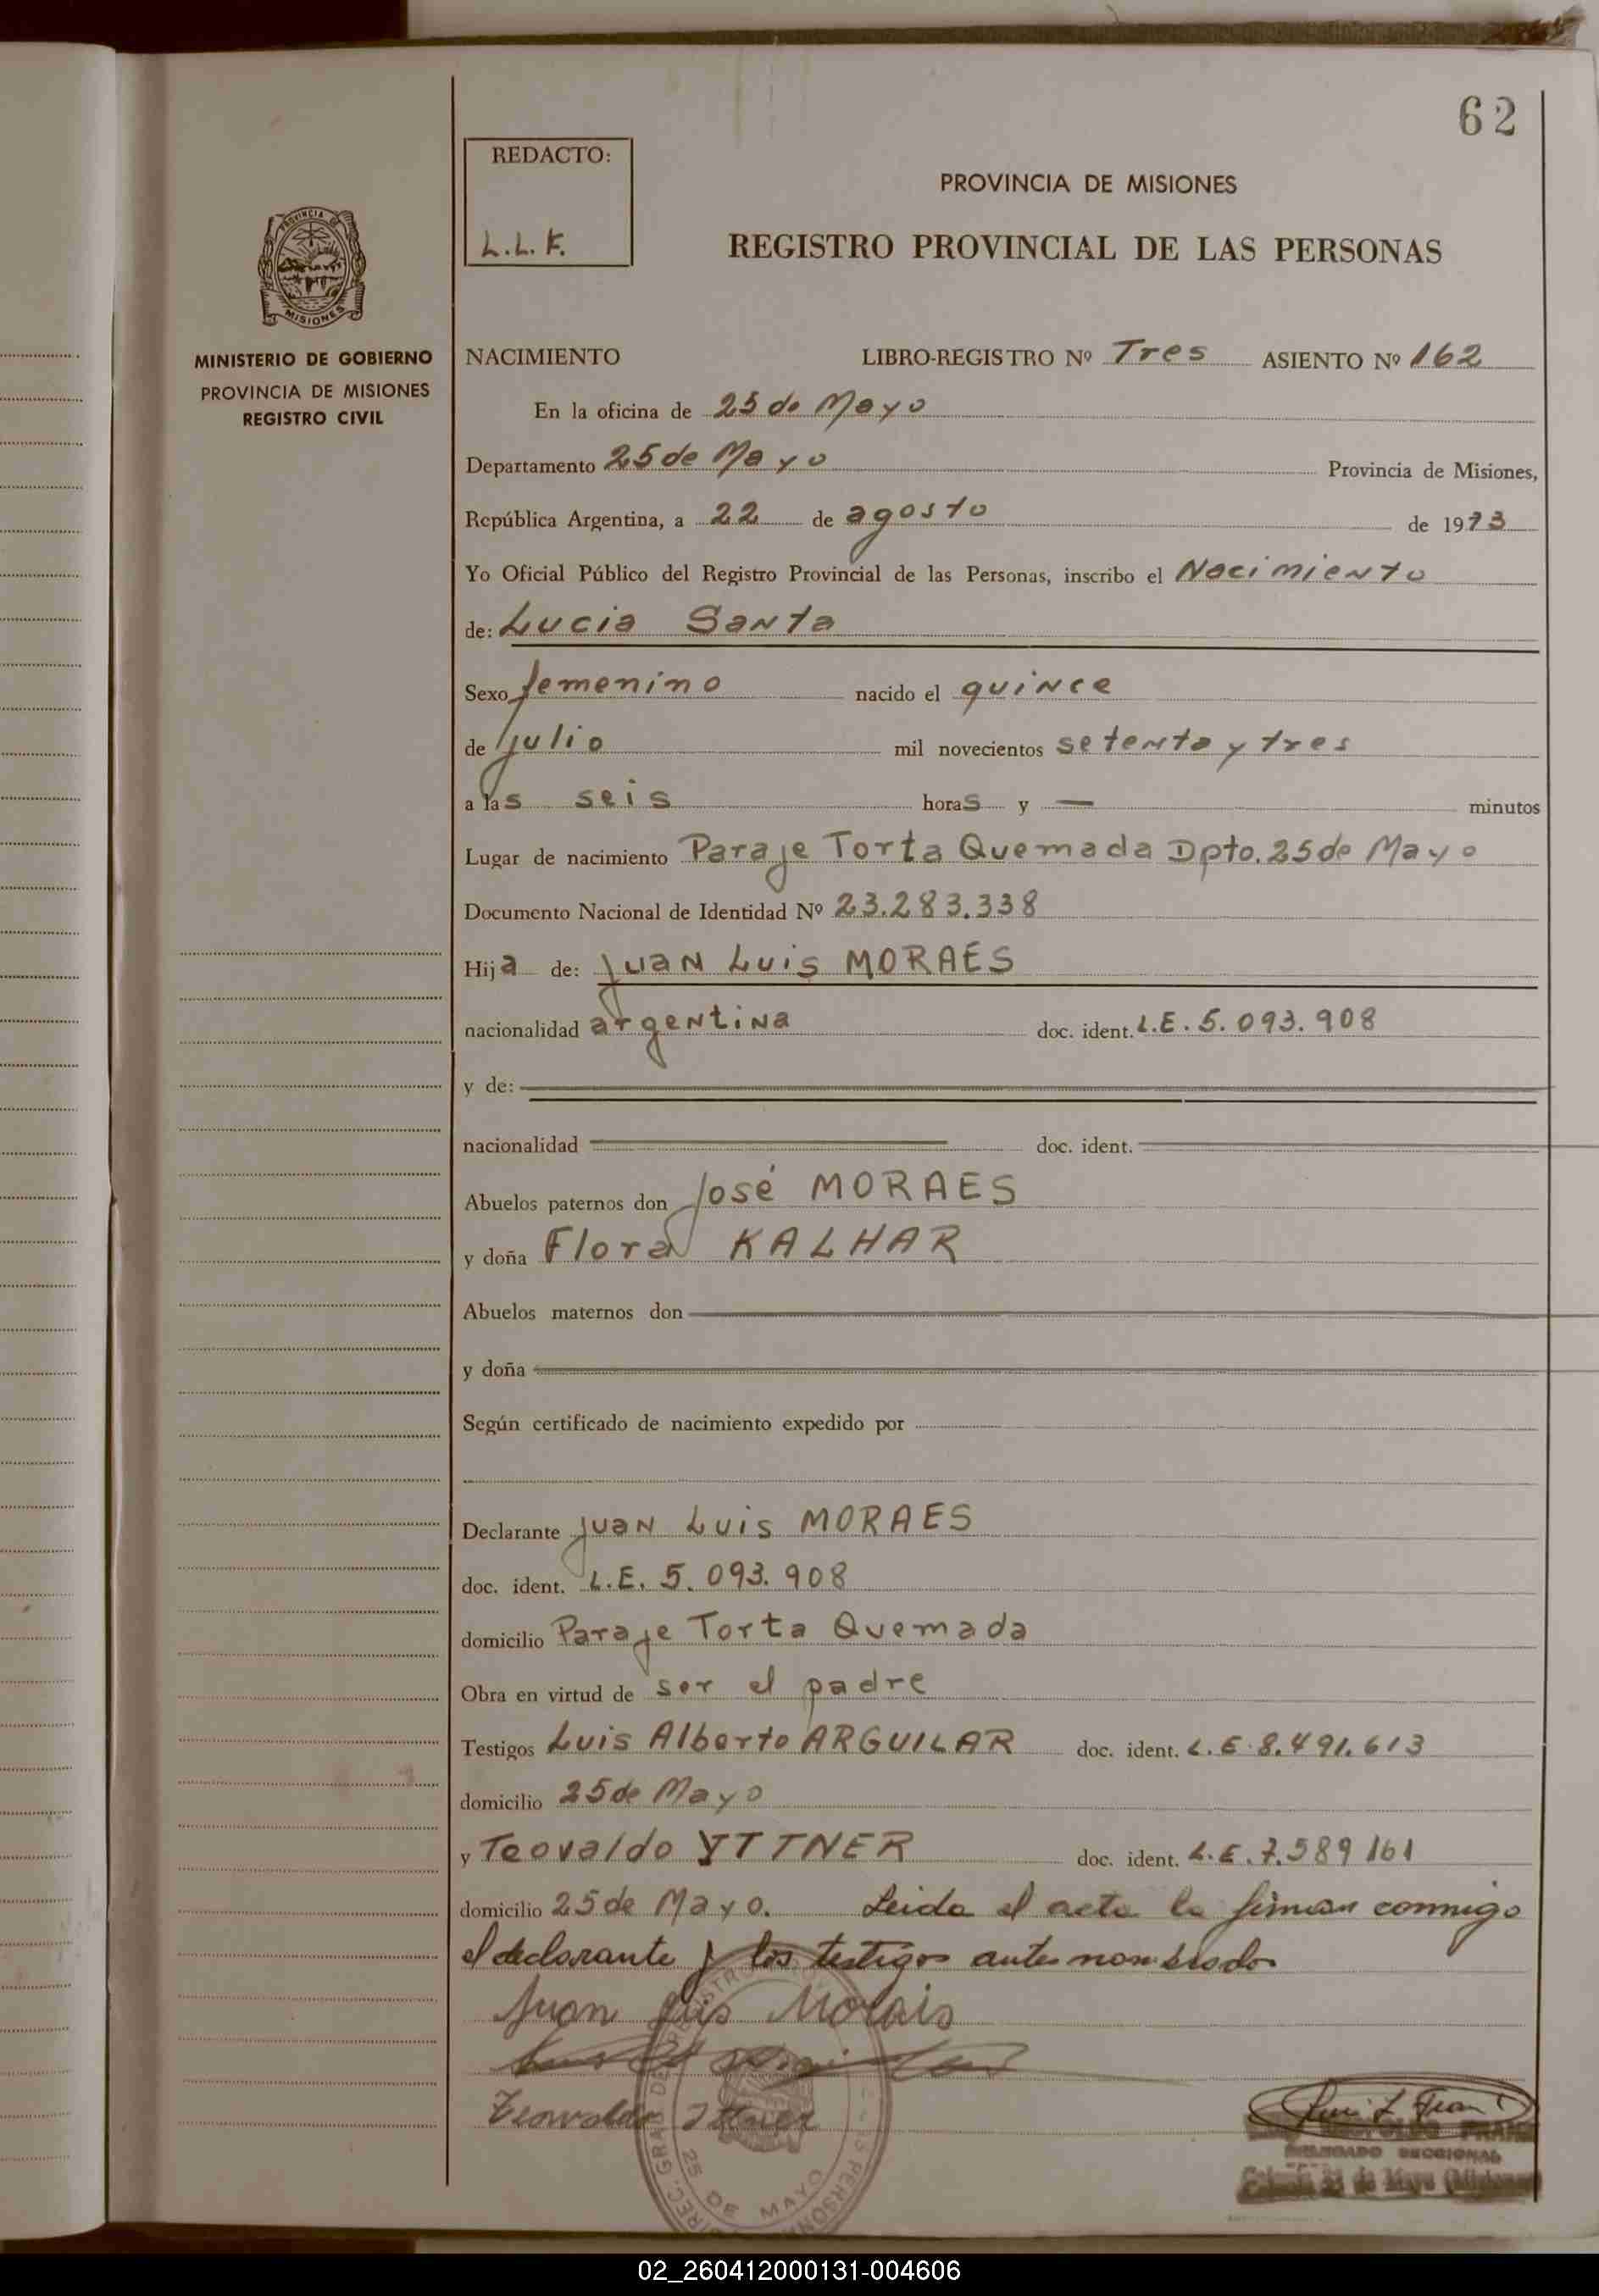 62
REDACTO:
L.L.F.
PROVINCIA DE MISIONES
REGISTRO PROVINCIAL DE LAS PERSONAS
PROVINCIA DE
MISIONES
MINISTERIO DE GOBIERNO
PROVINCIA DE MISIONES
REGISTRO CIVIL
NACIMIENTO LIBRO-REGISTRO Nº Tres ASIENTO Nº 162
En la oficina de 25 de Mayo
Departamento 25 de Mayo Provincia de Misiones,
República Argentina, a 22 de agosto de 1973
Yo Oficial Público del Registro Provincial de las Personas, inscribo el Nacimiento
de: Lucia Santa
Sexo femenino nacido el quince
de julio mil novecientos setenta y tres
a las seis horas y — minutos
Lugar de nacimiento Paraje Torta Quemada Dpto. 25 de Mayo
Documento Nacional de Identidad Nº 23.283.338
Hija de: Juan Luis MORAES
nacionalidad argentina doc. ident. L.E. 5.093.908
y de:
nacionalidad doc. ident.
Abuelos paternos don José MORAES
y doña Flora KALHAR
Abuelos maternos don
y doña
Según certificado de nacimiento expedido por
Declarante Juan Luis MORAES
doc. ident. L.E. 5.093.908
domicilio Paraje Torta Quemada
Obra en virtud de ser el padre
Testigos Luis Alberto ARGUILAR doc. ident. L.E 8.491.613
domicilio 25 de Mayo
y Teovaldo YTTNER doc. ident. L.E.7.589 161
domicilio 25 de Mayo. Leida el acta la firman conmigo
el declarante y los testigos antes nombrados
Juan Luis Morais
Teovaldo Ittner
25 DE MAYO
DELEGADO SECCIONAL
02_260412000131-004606